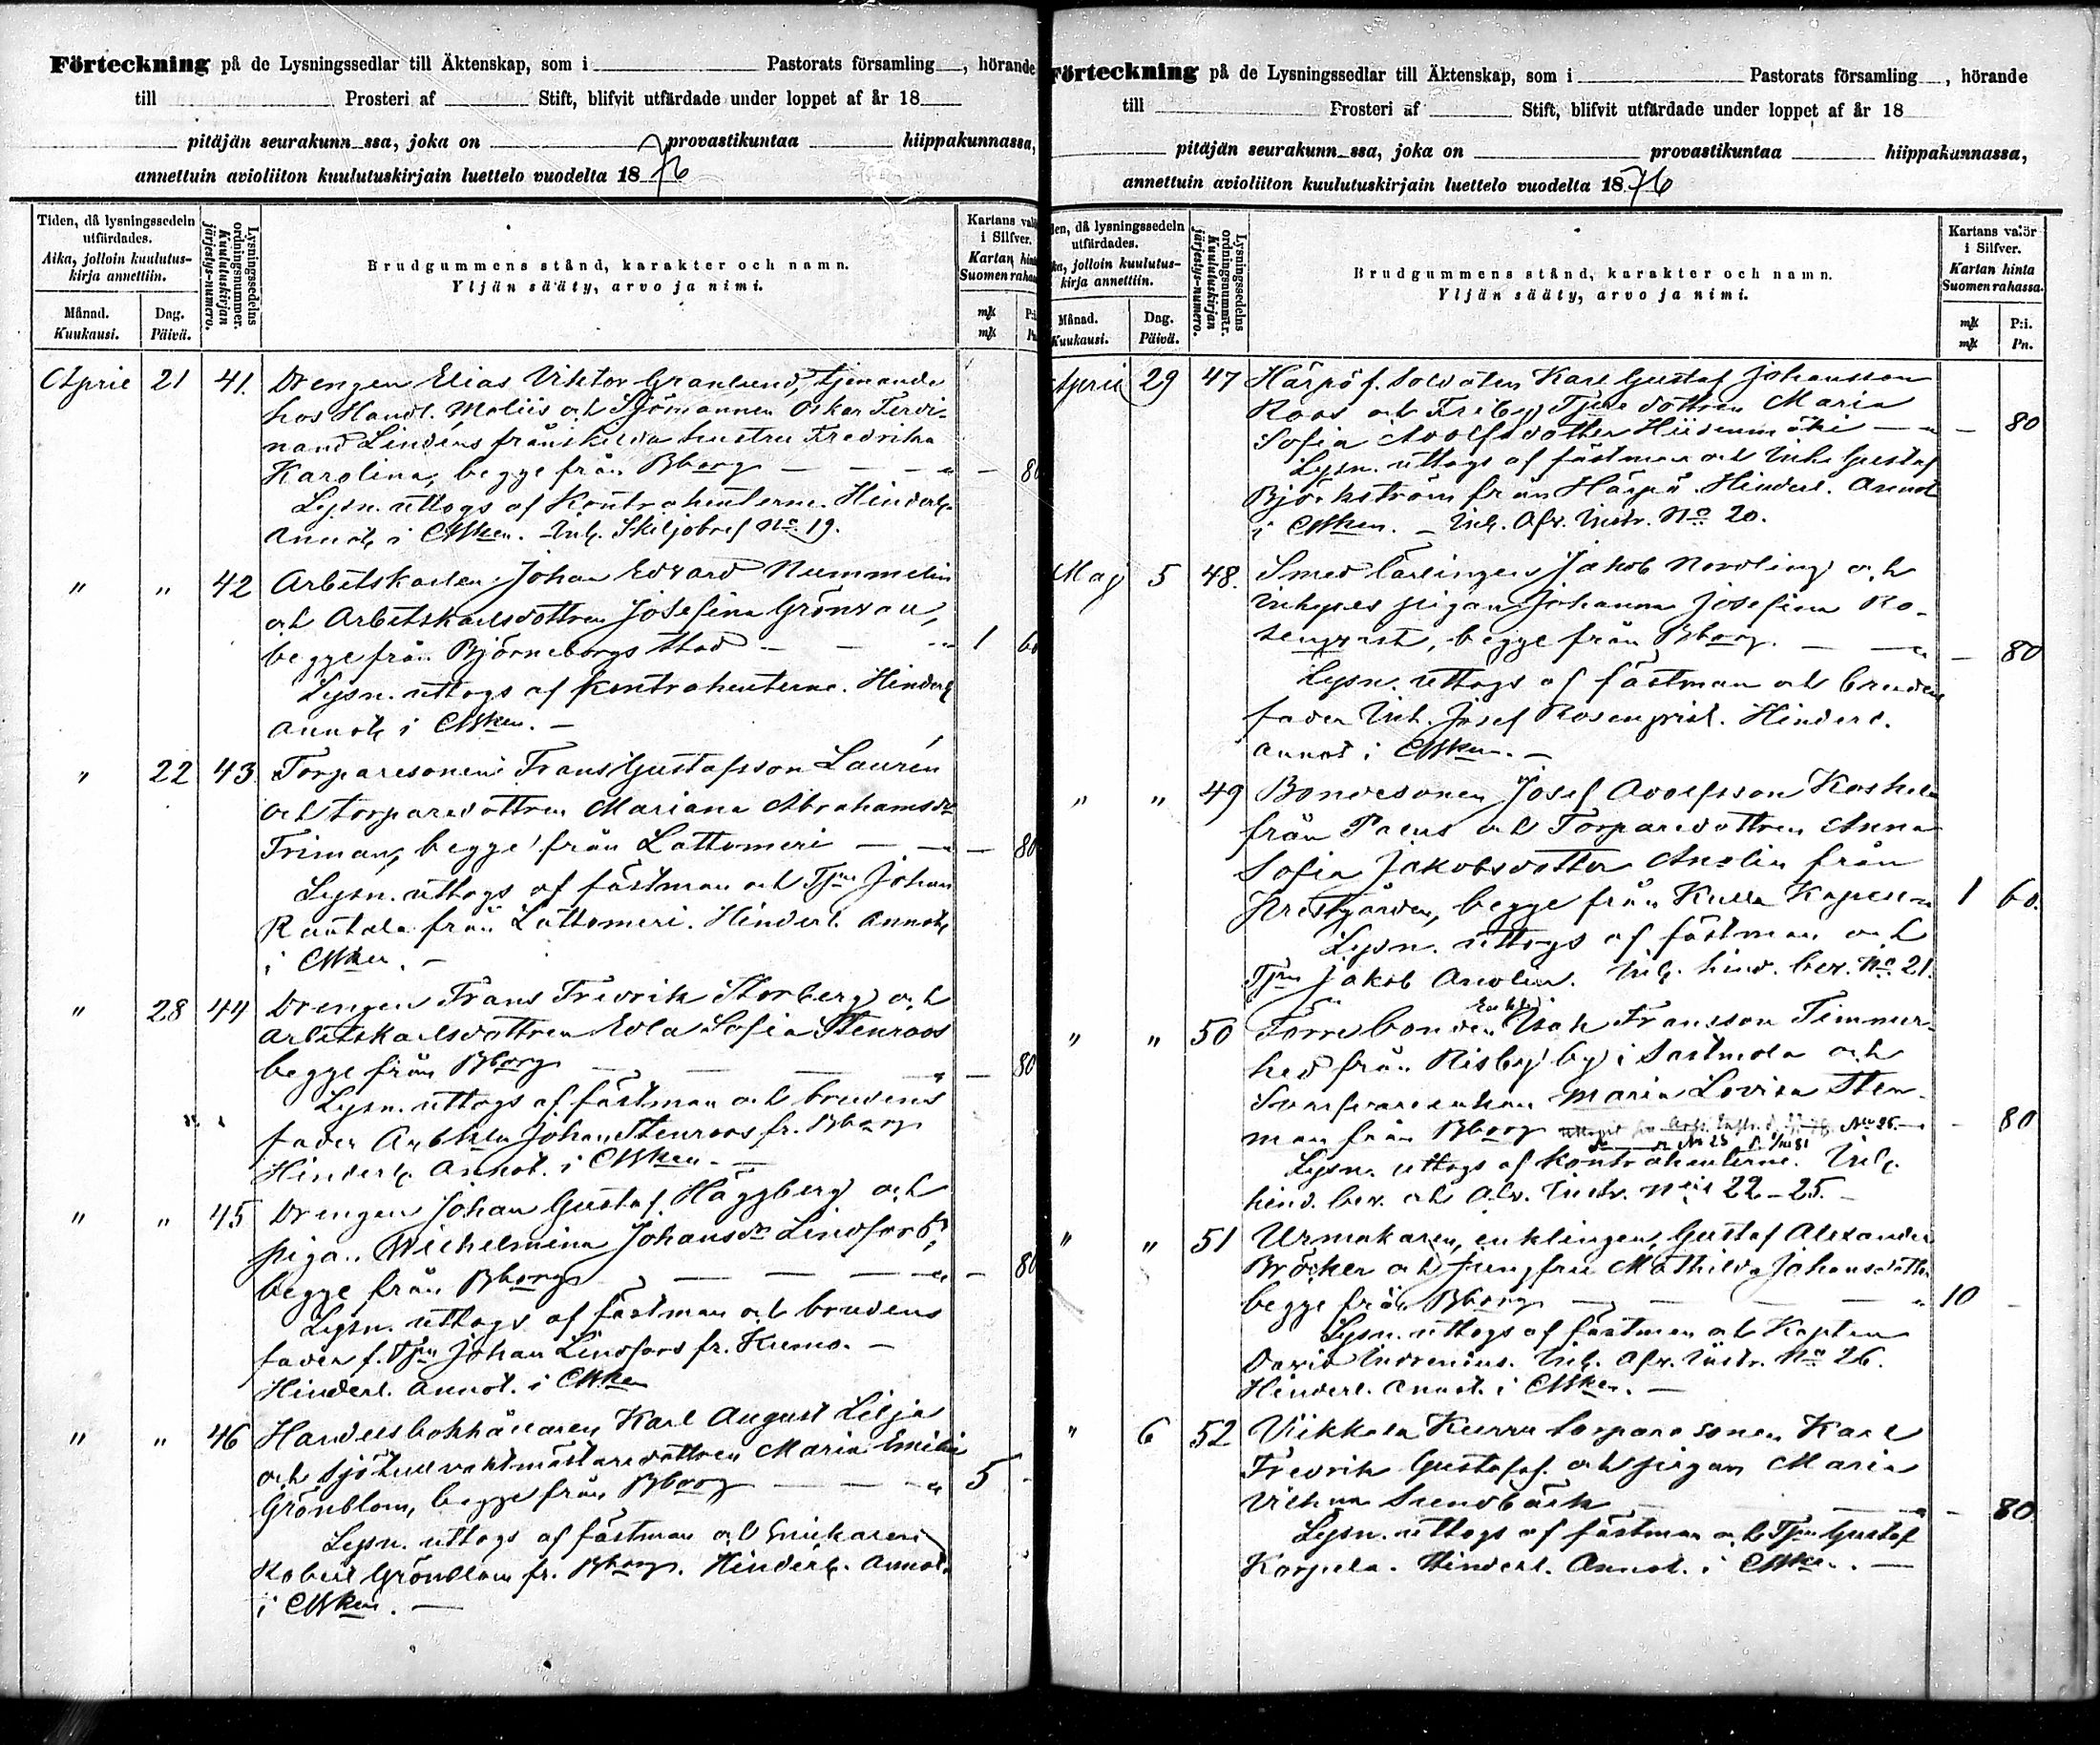 Förteckning på de Lysningssedlar till Äktenskap, som i Pastorats församling, hörande
till Prosteri af Stift, blifvit utfärdade under loppet af år 18
pitäjän seurakunn ssa, joka on provastikuntaa hiippakunnassa,
annettuin avioliiton kuulutuskirjain luettelo vuodelta 1876
Tiden, då lysningssedeln utfärdades.
Aika, jolloin kuulutuskirja annettiin.
Månad. Kuukausi.
Dag. Päivä.
Lysningssedelns ordningsnummer.
Kuulutuskirjan järjestys-numero.
Brudgummens stånd, karakter och namn.
Yljän sääty, arvo ja nimi.
Kartans valör i Silfver.
Kartan hinta Suomen rahassa.
April 21 41. Drengen Elias Viktor Granlund, tjenande
hos Handl. Moliis och Sjömannen Oskar Ferdi-
nand Lindéns frånskilda hustru Fredrika
Karolina, begge från Bborg — — — " — 80
Lysn. uttogs af Kontrahenterne. Hinderl.
annot. i Abken. Inl. Skiljobref No 19.
" " 42 Arbetskarlen Johan Edvard Nummelin
och Arbetskarlsdottren Josefina Grönroos,
begge från Björneborgs stad — — " 1 60
Lysn. uttogs af kontrahenterne. Hinderl.
annot. i Abken. —
" 22 43. Torparesonen Frans Gustafsson Laurén
och torparedottren Mariana Abrahamsdr
Friman, begge från Lattomeri — — — 80
Lysn. uttogs af fästman och Tjn Johan
Rautala från Lattomeri. Hinderl. annot.
i Abken. —
" 28 44 Drengen Frans Fredrik Storberg och
Arbetskarlsdottren Edla Sofia Stenroos
begge från Bborg — — — " — 80
Lysn. uttogs af fästman och brudens
fader Arbkln Johan Stenroos fr. Bborg
Hinderl. Annot. i Abken. —
" " 45 Drengen Johan Gustaf Häggberg och
pigan Wilhelmina Johansdr Lindfors,
begge från Bborg — — — " — 80
Lysn. uttogs af fästman och brudens
fader f. Tjn Johan Lindfors fr. Kumo. —
Hinderl. annot. i Abken
" " 46 Handelsbokhållaren Karl August Lilja
och Sjötullvaktmästaredottren Maria Emilia
Grönblom, begge från Bborg — — — " 5 -
Lysn. uttogs af fästman och Snickaren
Robert Grönblom fr. Bborg. Hinderl. Annot.
i Abken. —
Förteckning på de Lysningssedlar till Äktenskap, som i Pastorats församling, hörande
till Prosteri af Stift, blifvit utfärdade under loppet af år 18
pitäjän seurakunn ssa, joka on provastikuntaa hiippakunnassa,
annettuin avioliiton kuulutuskirjain luettelo vuodelta 1876
den, då lysningssedeln utfärdades.
ka, jolloin kuulutuskirja annettiin.
Månad. Kuukausi.
Dag. Päivä.
Lysningssedelns ordningsnummr.
Kuulutuskirjan järjestys-numero.
Brudgummens stånd, karakter och namn.
Yljän sääty, arvo ja nimi.
Kartans valör i Silfver.
Kartan hinta Suomen rahassa.
P:i. Pn.
April 29 47 Härpö f. Soldaten Karl Gustaf Johansson
Roos och Friby Tjnedottren Maria
Sofia Adolfsdotter Hiidenmäki — " — 80
Lysn. uttogs af fästman och Inh. Gustaf
Björkström från Härpö. Hinderl. Annot
i Abken. — Inl. Afv. Instr. No 20.
Maj 5 48. Smed lärlingen Jakob Nordling och
Inhyses pigan Johanna Josefina Ro-
senqvist, begge från Bborg. — — " — 80
Lysn. uttogs af fästman och brudens
fader Inh. Josef Rosenqvist. Hinderl.
annot i Abken. —
" " 49 Bondesonen Josef Adolfsson Koskela
från Paeus och Torparedottren Anna
Sofia Jakobsdotter Anolin från
Prestgården, begge från Kulla Kapell " 1 60.
Lysn. uttogs af fästman och
Tjn Jakob Anolin. Inl. hind. bev. No 21.
" " 50 Förre bonden Enkl. Isak Fransson Timmer-
hed från Risby by i Sastmola och
Maria Lovisa Sten-
man från Bborg — 80
Lysn. uttogs af kontrahenterne. Inl.
hind. bev. och Afv. Instr. Nris 22-25. —
" " 51 Urmakaren, enklingen, Gustaf Alexander
Bröcker och Jungfru Mathilda Johansdotter
begge från Bborg — — — " 10 —
Lysn. uttogs af fästman och Kapten
David Indrenius. Inl. Afv. Instr. No 26.
Hinderl. annot. i Abken. —
" 6 52 Viikkala Kurru torpare sonen Karl
Fredrik Gustafsf. och pigan Maria
Vilhna Sundbäck — — " — 80
Lysn. uttogs af fästman och Tjn Gustaf
Korpela. Hinderl. Annot. i Abken. —